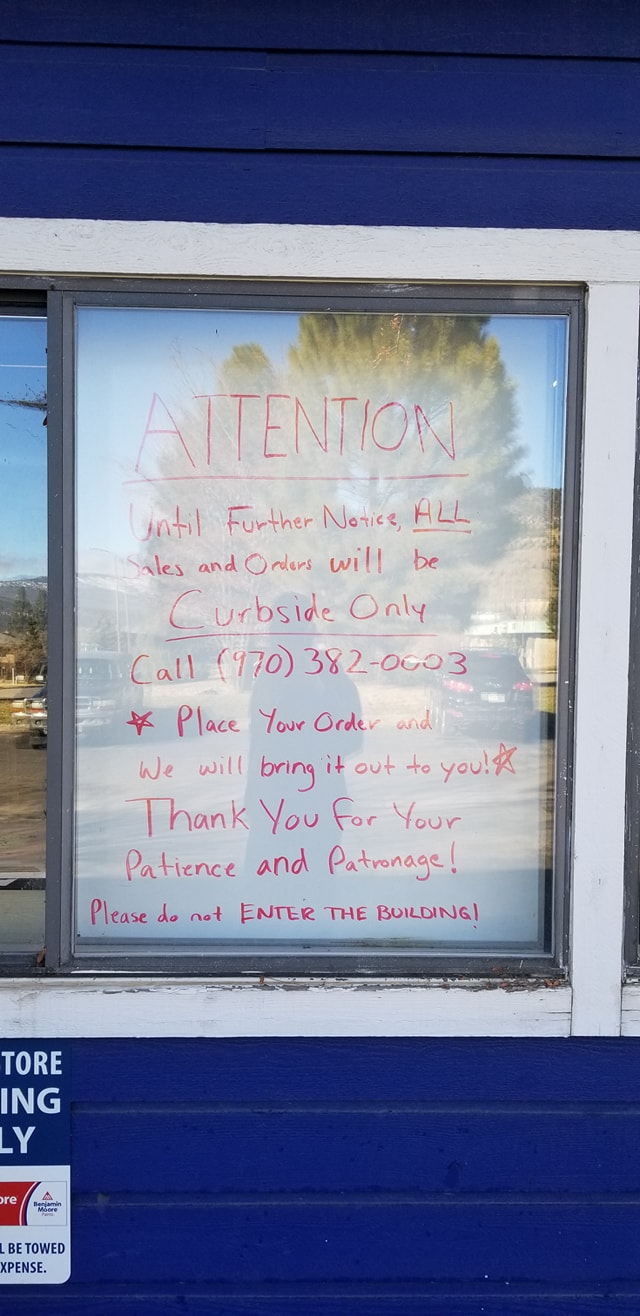 ATTENTION
Until Further Notice, ALL
Sales and Orders will be
Curbside Only
Call (970) 382-0003
Place Your Order and
We will bring it out to you!
Thank You for Your
Patience and Patronage!
Please do not ENTER THE BUILDING!
TORE
ING
LY
ore
Benjamin
Moore
Paints
L BE TOWED
XPENSE.